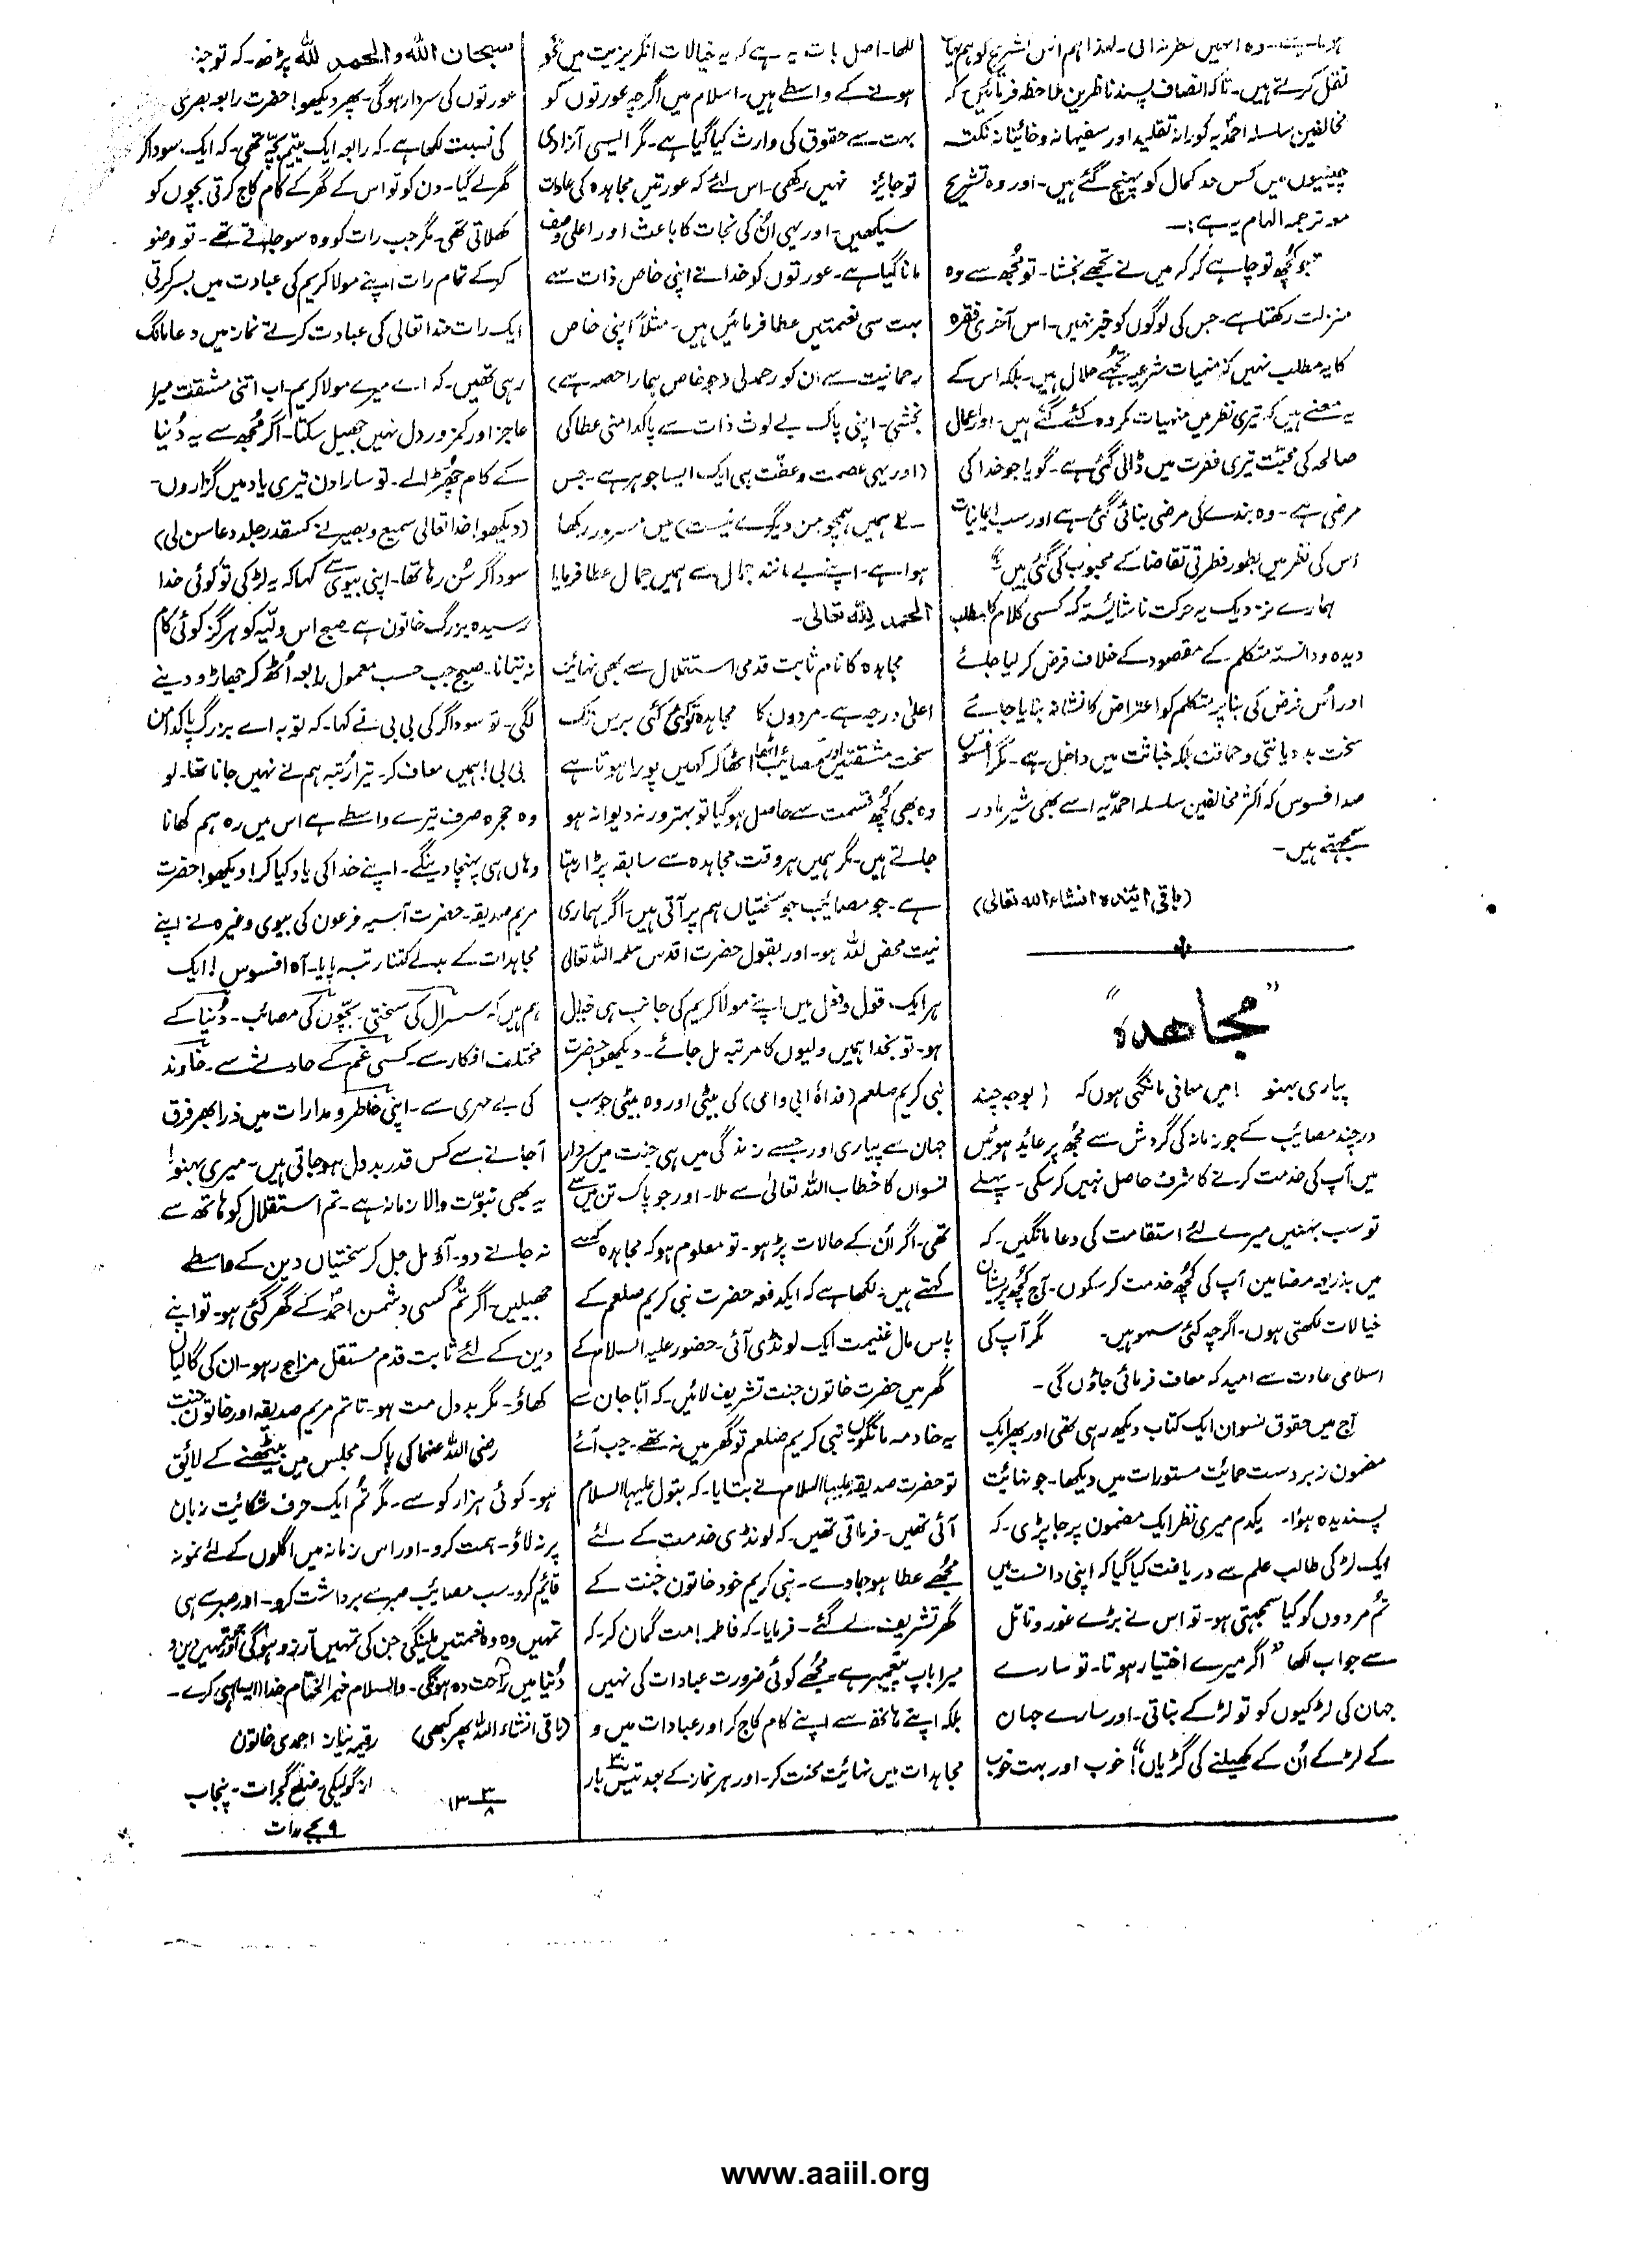 ہوتا ہے۔ وہ انہیں نظر نہ آئی۔ لہذا ہم اس تشریح کو ہم یہاں
نقل کرتے ہیں۔ تاکہ انصاف پسند ناظرین ملاحظہ فرمائیں کہ
مخالفین سلسلہ احمدیہ کورانہ تقلید اور سفیہانہ و خائنانہ نکتہ
چینیوں میں کس حد کمال کو پہنچ گئے ہیں۔ اور وہ تشریح
معہ ترجمہ الہام یہ ہے:۔
جو کچھ تو چاہے کر کہ میں نے تجھے بخشا۔ تو مجھ سے وہ
منزلت رکھتا ہے۔ جس کی لوگوں کو خبر نہیں۔ اس آخری فقرہ
کا یہ مطلب نہیں کہ منہیات شرعیہ تجھے حلال ہیں۔ بلکہ اس کے
یہ معنے ہیں کہ تیری نظر میں منہیات مکروہ کئے گئے ہیں۔ اور اعمال
صالحہ کی محبت تیری فطرت میں ڈالی گئی ہے۔ گویا جو خدا کی
مرضی ہے۔ وہ بندے کی مرضی بنائی گئی ہے اور سب ایمانیات
اس کی نظر میں بطور فطرتی تقاضا کے محبوب کی گئی ہیں"
ہمارے نزدیک یہ حرکت ناشائستہ کہ کسی کلام کا مطلب
دیدہ و دانستہ متکلم کے مقصود کے خلاف فرض کر لیا جائے
اور اُس غرض کی بنا پر متکلم کو اعتراض کا نشانہ بنایا جائے
سخت بددیانتی و حماقت بلکہ خباثت میں داخل ہے۔ مگر افسوس
صد افسوس کہ اکثر مخالفین سلسلہ احمدیہ اسے بھی شیر مادر
سمجھتے ہیں۔
(باقی آئندہ انشاء اللہ تعالی)
"مجاهدہ"
پیاری بہنو! میں معافی مانگتی ہوں کہ (بوجہ چند
در چند مصائب کے جو زمانہ کی گردش سے مجھ پر عائد ہوئیں
میں آپ کی خدمت کرنے کا شرف حاصل نہیں کر سکی۔ پہلے
تو سب بہنیں میرے لئے استقامت کی دعا مانگیں۔ کہ
میں بذریعہ مضامین آپ کی کچھ خدمت کر سکوں۔ آج کچھ پریشان
خیالات لکھتی ہوں۔ اگرچہ کئی سہو ہیں۔ مگر آپ کی
اسلامی عادت سے امید کہ معاف فرمائی جاؤں گی۔
آج میں حقوق نسوان ایک کتاب دیکھ رہی تھی اور پھر ایک
مضمون زبردست حمائیت مستورات میں دیکھا۔ جو نہائیت
پسندیدہ ہؤا۔ یکدم میری نظر ایک مضمون پر جا پڑی۔ کہ
ایک لڑکی طالب علم سے دریافت کیا گیا کہ اپنی دانست میں
تُم مردوں کو کیا سمجہتی ہو۔ تو اس نے بڑے غور و تامل
سے جواب لکھا "اگر میرے اختیار ہوتا۔ تو سارے
جہان کی لڑکیوں کو تو لڑکے بناتی۔ اور سارے جہان
کے لڑکے اُن کے کھیلنے کی گڑیاں"! خوب اور بہت خوب
لکھا۔ اصل بات یہ ہے کہ یہ خیالات انگریزیت میں محو
ہونے کے واسطے ہیں۔ اسلام میں اگرچہ عورتوں کو
بہت سے حقوق کی وارث کیا گیا ہے۔ مگر ایسی آزادی
تو جائز نہیں رکھی۔ اس لئے کہ عورتیں مجاہدہ کی عادات
سیکھیں۔ اور یہی اُن کی نجات کا باعث اور اعلی وصف
مانا گیا ہے۔ عورتوں کو خدا نے اپنی خاص ذات سے
بہت سی نعمتیں عطا فرمائیں ہیں۔ مثلاً اپنی خاص
رحمانیت سے ان کو رحمدلی (جو خاص ہمارا حصہ ہے)
بخشی۔ اپنی پاک بے لوث ذات سے پاکدامنی عطا کی
(اور یہی عصمت و عفت ہی ایک ایسا جوہر ہے۔ جس
نے ہمیں ہمچومن دیگرے نیست) میں مسرور رکھا
ہوا ہے۔ اپنے بے مانند جمال سے ہمیں جمال عطا فرمایا
الحمد للہ تعالی۔
مجاہدہ کا نام ثابت قدمی استقلال سے بھی نہائیت
اعلیٰ درجہ ہے۔ مردوں کا مجاہدہ تو کہیں کئی برس تک
سخت مشقتیں اور مصائب اٹھا اٹھا کر کہیں پورا ہوتا ہے
وہ بھی کچھ قسمت سے حاصل ہو گیا تو بہتر ورنہ دیوانہ ہو
جاتے ہیں۔ مگر ہمیں ہر وقت مجاہدہ سے سابقہ پڑا رہتا
ہے۔ جو مصائب جو سختیاں ہم پر آتی ہیں۔ اگر ہماری
نیت محض للہ ہو۔ اور بقول حضرت اقدس سلمہ اللہ تعالی
ہر ایک قول و فعل میں اپنے مولا کریم کی جانب ہی خیال
ہو۔ تو بخدا ہمیں ولیوں کا مرتبہ مل جائے۔ دیکھو! حضرت
نبی کریم صلعم (فداہ ابی وامی) کی بیٹی اور وہ بیٹی جو سب
جہان سے پیاری اور جسے زندگی میں ہی جنت میں سردار
نسواں کا خطاب اللہ تعالیٰ سے ملا۔ اور جو پاک تن میں سے
تھی۔ اگر اُن کے حالات پڑہو۔ تو معلوم ہو کہ مجاہدہ کسے
کہتے ہیں۔ لکھا ہے کہ ایکدفعہ حضرت نبی کریم صلعم کے
پاس مال غنیمت ایک لونڈی آئی۔ حضور علیہ السلام کے
گھر میں حضرت خاتون جنت تشریف لائیں۔ کہ ابا جان سے
یہ خادمہ مانگوں۔ نبی کریم صلعم تو گھر میں نہ تھے۔ جب آئے
تو حضرت صدیقہ علیہا السلام نے بتایا۔ کہ بتول علیہا السلام
آئی تھیں۔ فرماتی تھیں۔ کہ لونڈی خدمت کے لئے
مجھے عطا ہو جاوے۔ نبی کریم خود خاتون جنت کے
گھر تشریف لے گئے۔ فرمایا۔ کہ فاطمہ! مت گمان کر۔ کہ
میرا باپ پیغمبر ہے۔ مجھے کوئی ضرورت عبادات کی نہیں
بلکہ اپنے ہاتھ سے اپنے کام کاج کر اور عبادات میں و
مجاہدات میں نہائیت محنت کر۔ اور ہر نماز کے بعد تیس ۳۰ بار
سبحان اللہ والحمد للہ پڑھ۔ کہ تو جنت
عورتوں کی سردار ہوگی۔ پھر دیکھو! حضرت رابعہ بصری
کی نسبت لکھا ہے۔ کہ رابعہ ایک یتیم بچہ تھی۔ کہ ایک سوداگر
گھر لے گیا۔ دن کو تو اس کے گھر کے کام کاج کرتی بچوں کو
کھلاتی تھی۔ مگر جب رات کو وہ سو جاتے تھے۔ تو وضو
کر کے تمام رات اپنے مولا کریم کی عبادت میں بسر کرتی
ایک رات خدا تعالی کی عبادت کرتے نماز میں دعا مانگ
رہی تھیں۔ کہ اے میرے مولا کریم۔ اب اتنی مشقت میرا
عاجز اور کمزور دل نہیں جھیل سکتا۔ اگر مجھ سے یہ دُنیا
کے کام چھڑا لے۔ تو سارا دن تیری یاد میں گزاروں۔
(دیکھو! خدا تعالی سمیع و بصیر نے کسقدر جلد دعا سن لی)
سوداگر سُن رہا تھا۔ اپنی بیوی سے کہا کہ یہ لڑکی تو کوئی خدا
رسیدہ بزرگ خاتون ہے صبح اس ولیّہ کو ہرگز کوئی کام
نہ بتانا۔ صبح جب حسب معمول رابعہ اُٹھ کر جھاڑو دینے
لگی۔ تو سوداگر کی بی بی نے کہا۔ کہ توبہ اے بزرگ پاکدامن
بی بی! ہمیں معاف کر۔ تیرا رتبہ ہم نے نہیں جانا تھا۔ لو
وہ حجرہ صرف تیرے واسطے ہے اس میں رہ ہم کھانا
وہاں ہی پہنچا دینگے۔ اپنے خدا کی یاد کیا کر! دیکھو! حضرت
مریم صدیقہ۔ حضرت آسیہ فرعون کی بیوی وغیرہ نے اپنے
مجاہدات کے بدلے کتنا رتبہ پایا۔ آہ افسوس! ایک
ہم ہیں کہ سسرال کی سختی۔ بچوں کی مصائب۔ دُنیا کے
مختلف افکار سے۔ کسی غم کے حادثے سے۔ خاوند
کی بے مہری سے۔ اپنی خاطر و مدارات میں ذرا بھر فرق
آجانے سے کس قدر بددل ہو جاتی ہیں۔ میری بہنو!
یہ بھی نبوت والا زمانہ ہے۔ تم استقلال کو ہاتھ سے
نہ جانے دو۔ آؤ مل جل کر سختیاں دین کے واسطے
جھیلیں۔ اگر تُم کسی دشمن احمدؐ کے گھر گئی ہو۔ تو اپنے
دین کے لئے ثابت قدم مستقل مزاج رہو۔ ان کی گالیاں
کھاؤ۔ مگر بددل مت ہو۔ تا تم مریم صدیقہ اور خاتون جنت
رضی اللہ عنہما کی پاک مجلس میں بیٹھنے کے لائق
ہو۔ کوئی ہزار کوسے۔ مگر تُم ایک حرف شکائیت زبان
پر نہ لاؤ۔ ہمت کرو۔ اور اس زمانہ میں اگلوں کے لئے نمونہ
قائم کرو۔ سب مصائب صبر سے برداشت کرو۔ اور صبر سے ہی
تمہیں وہ وہ نعمتیں ملینگی جن کی تمہیں آرزو ہوگی جو تمہیں دین و
دُنیا میں راحت دہ ہونگی۔ والسلام خیر الختام خدا ایسا ہی کرے۔
(باقی انشاء اللہ پھر کبھی) رقیمہ نیاز احمدی خاتون
از گولیکی۔ ضلع گجرات۔ پنجاب
۹ بجے رات
www.aaiil.org